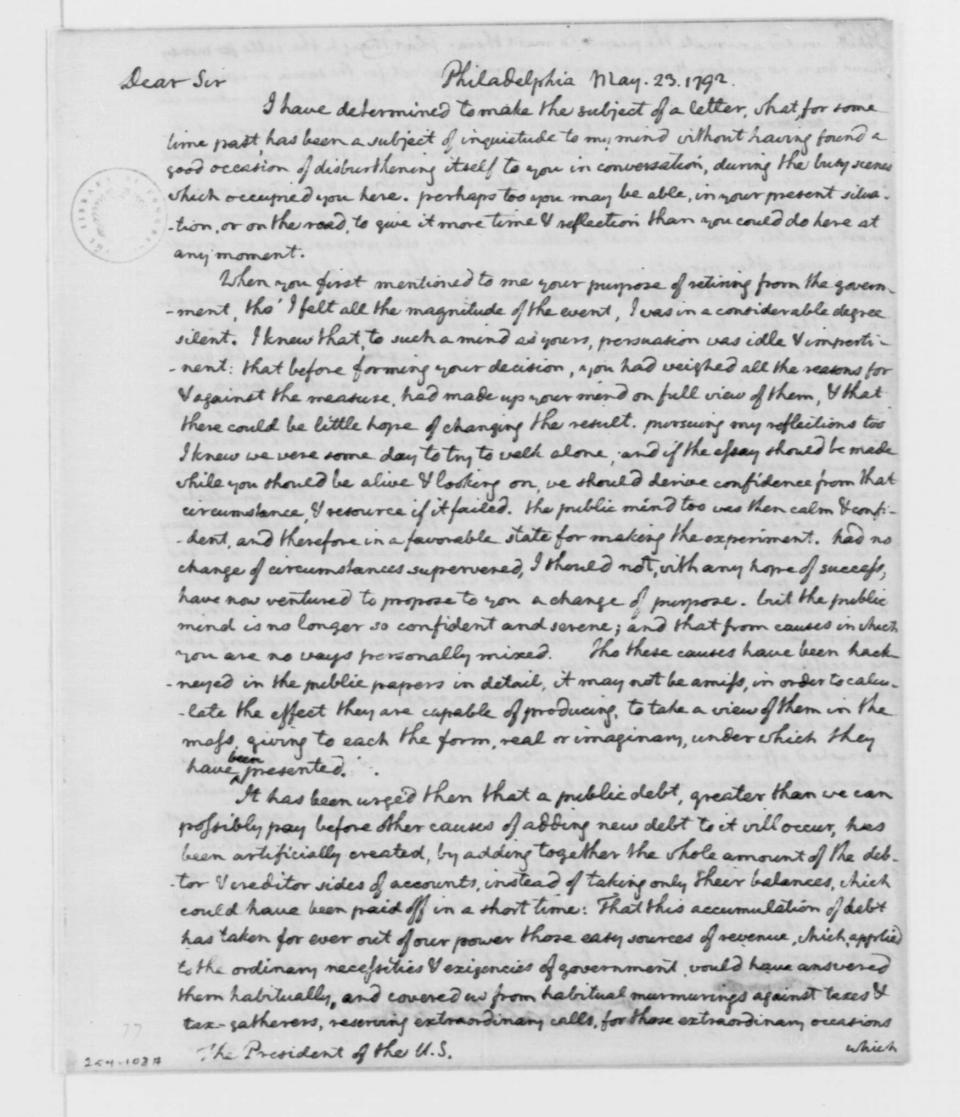 Dear Sir Philadelphia May. 23. 1792.
I have determined to make the subject of a letter, what, for some
time past, has been a subject of inquietude to my mind without having found a
good occasion of disburthening itself to you in conversation, during the busy scenes
which occupied you here. perhaps too you may be able, in your present situa-
-tion, or on the road, to give it more time & reflection than you could do here at
any moment.
When you first mentioned to me your purpose of retiring from the govern-
-ment, tho' I felt all the magnitude of the event, I was in a considerable degree
silent. I knew that, to such a mind as yours, persuasion was idle & imperti-
-nent: that before forming your decision, you had weighed all the reasons for
& against the measure, had made up your mind on full view of them, & that
there could be little hope of changing the result. pursuing my reflections too
I knew we were some day to try to walk alone; and if the essay should be made
while you should be alive & looking on, we should derive confidence from that
circumstance, & resource if it failed. the public mind too was then calm & confi-
-dent, and therefore in a favorable state for making the experiment. had no
change of circumstances supervened, I should not, with any hope of success,
have now ventured to propose to you a change of purpose. but the public
mind is no longer so confident and serene; and that from causes in which
you are no ways personally mixed. Tho these causes have been hack-
-neyed in the public papers in detail, it may not be amiss, in order to calcu-
-late the effect they are capable of producing, to take a view of them in the
mass, giving to each the form, real or imaginary, under which they
have been presented.
It has been urged then that a public debt, greater than we can
possibly pay before other causes of adding new debt to it will occur, has
been artificially created, by adding together the whole amount of the deb-
-tor & creditor sides of accounts, instead of taking only their balances, which
could have been paid off in a short time: That this accumulation of debt
has taken for ever out of our power those easy sources of revenue, which, applied
to the ordinary necessities & exigencies of government, would have answered
them habitually, and covered us from habitual murmurings against taxes &
tax-gatherers, reserving extraordinary calls, for those extraordinary occasions
The President of the U.S. which
77